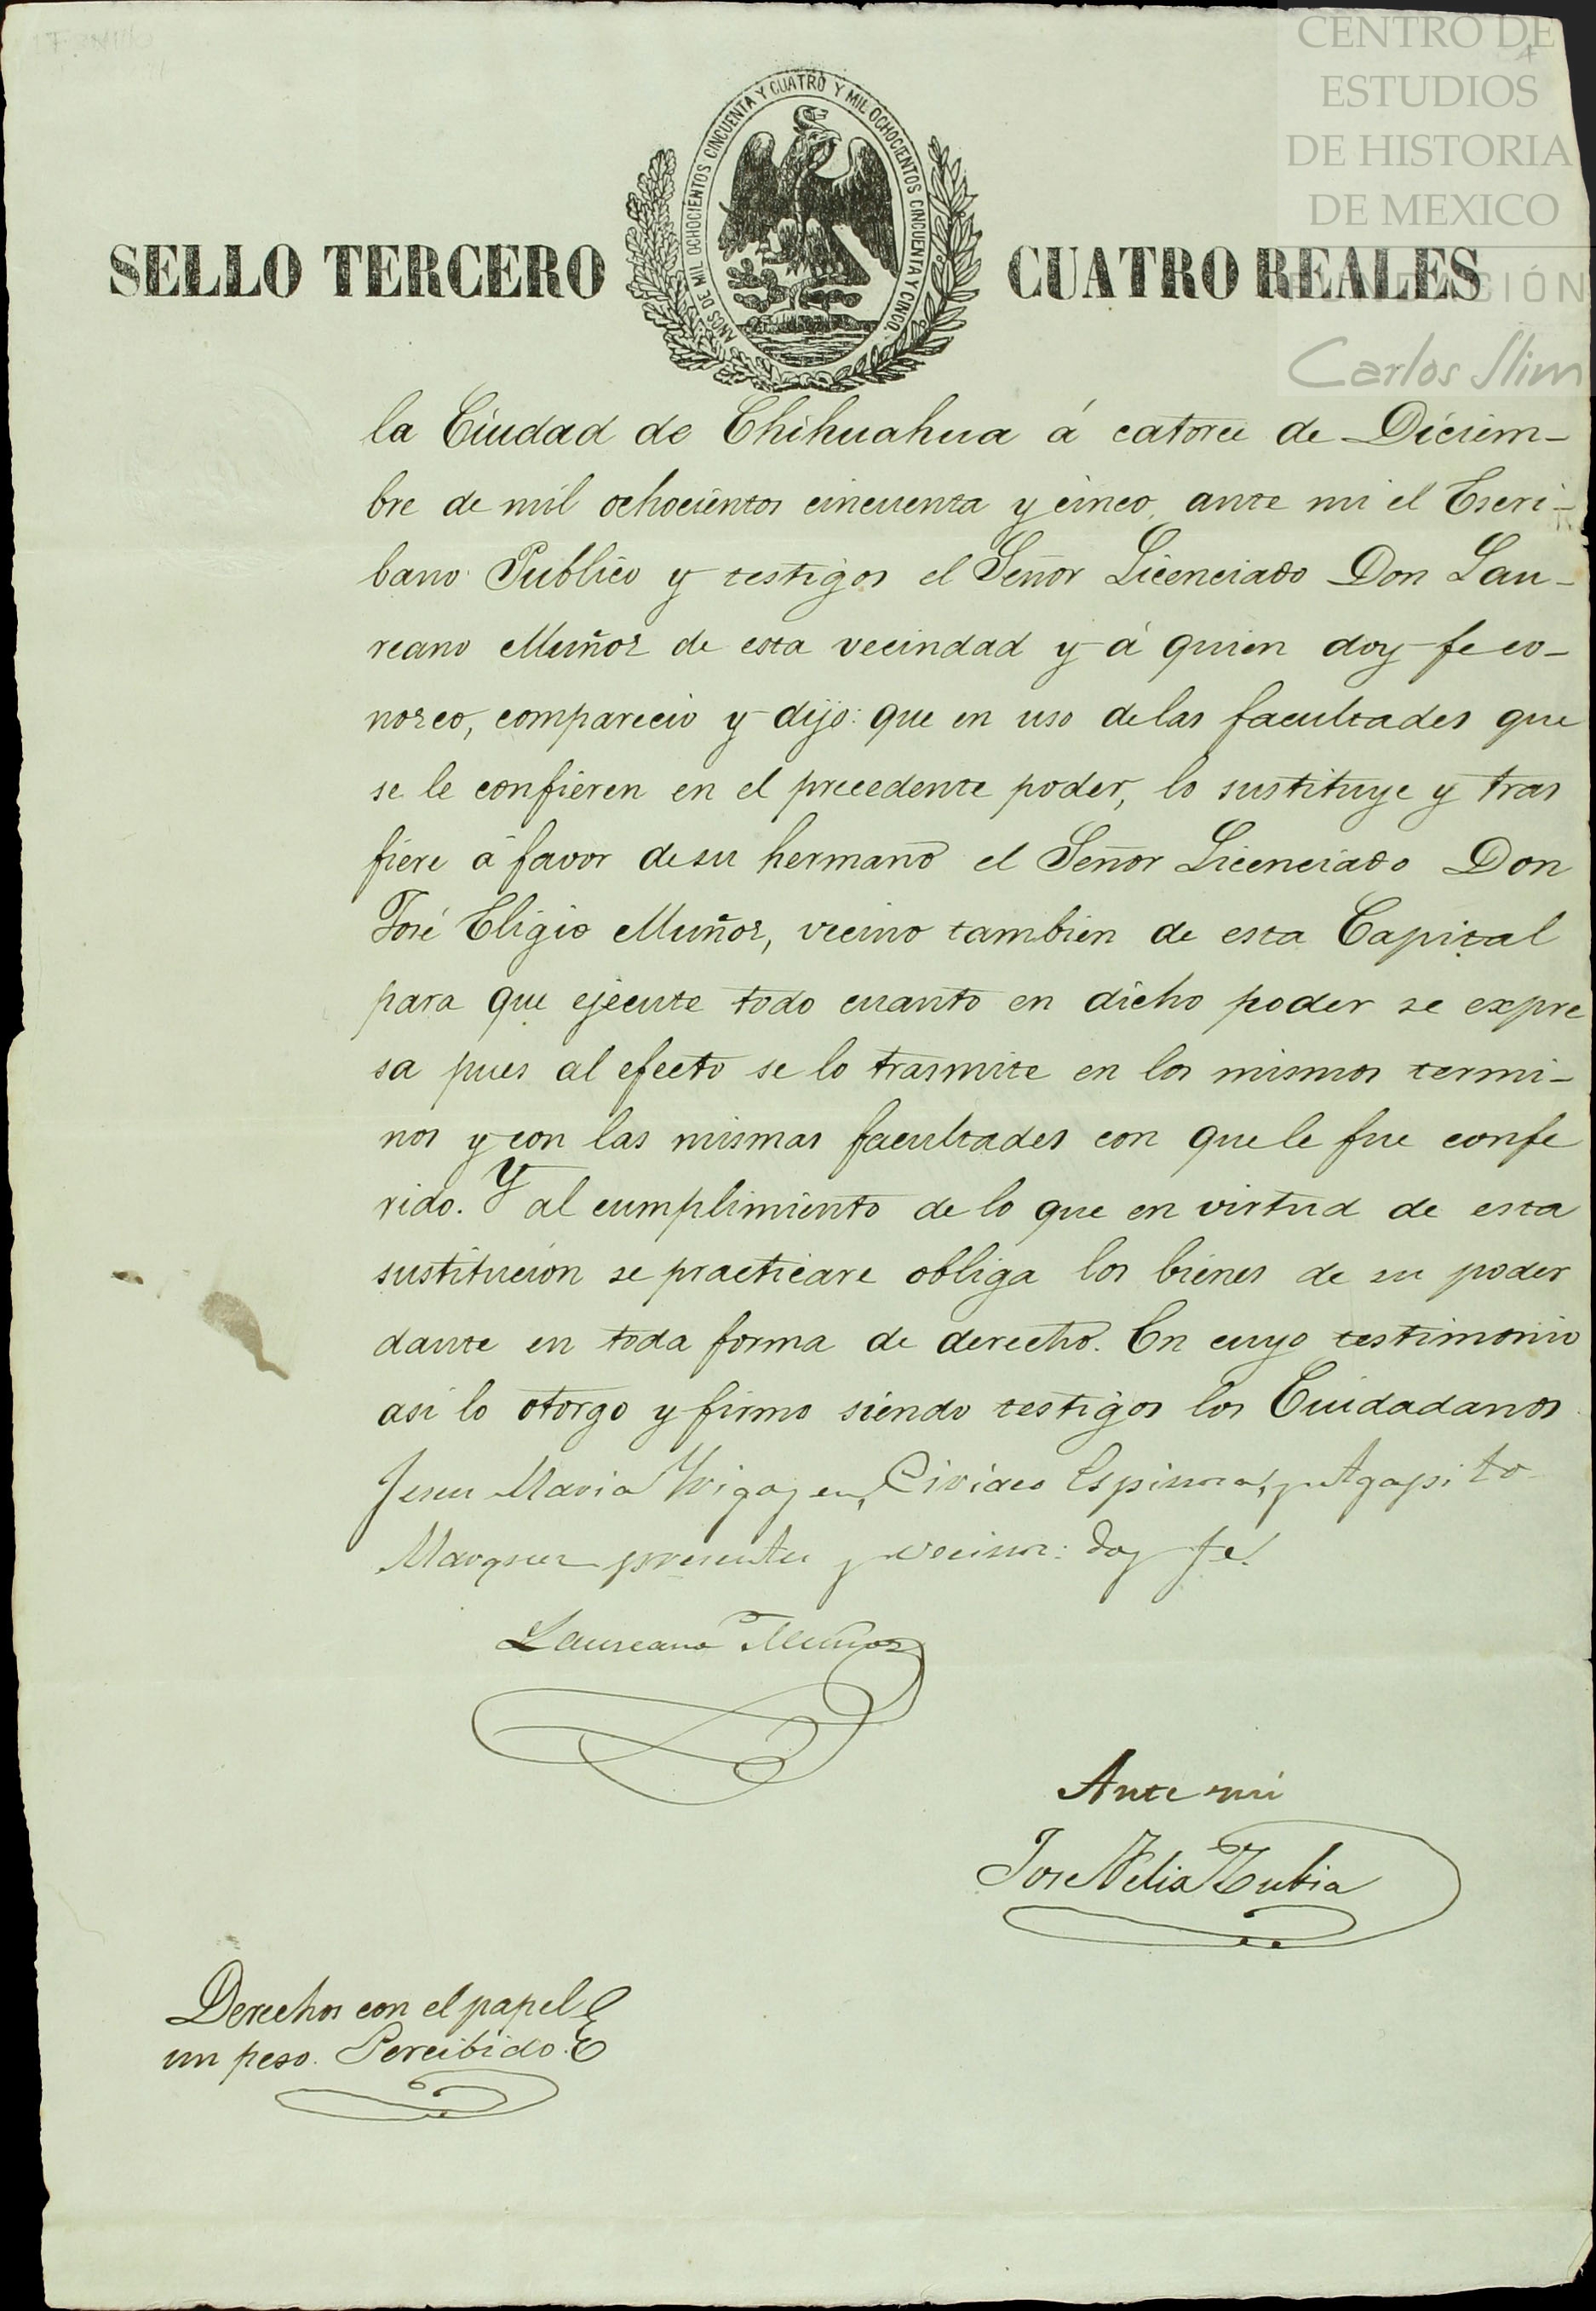 CENTRO DE
ESTUDIOS
DE HISTORIA
DE MEXICO
CIÓN
Carlos Slim
AÑOS DE MIL OCHOCIENTOS CINCUENTA Y CUATRO Y MIL OCHOCIENTOS CINCUENTA Y CINCO.
SELLO TERCERO CUATRO REALES
la Ciudad de Chihuahua á catorce de Diciem-
bre de mil ochocientos cincuenta y cinco, ante mi el Escri-
bano Publico y testigos el Señor Licenciado Don Lau-
reano Muñoz de esta vecindad y á quien doy fe co-
nozco, comparecio y dijo: que en uso de las facultades que
se le confieren en el precedente poder, lo sustituye y tras
fiere á favor de su hermano el Señor Licenciado Don
José Eligio Muñoz, vecino tambien de esta Capital
para que ejecute todo cuanto en dicho poder se expre
sa pues al efecto se lo trasmite en los mismos termi-
nos y con las mismas facultades con que le fue confe
rido. Y al cumplimiento de lo que en virtud de esta
sustitucion se practicare obliga los bienes de su poder
dante en toda forma de derecho. En cuyo testimonio
asi lo otorgo y firmo siendo testigos los Ciudadanos
Jesus Maria Espinosa, y Agapito
Marquez presentes y vecinos: doy fe.
Laureano Muñoz
Ante mi
Jose Felix Zubia
Derechos con el papel
un peso. Percibido.